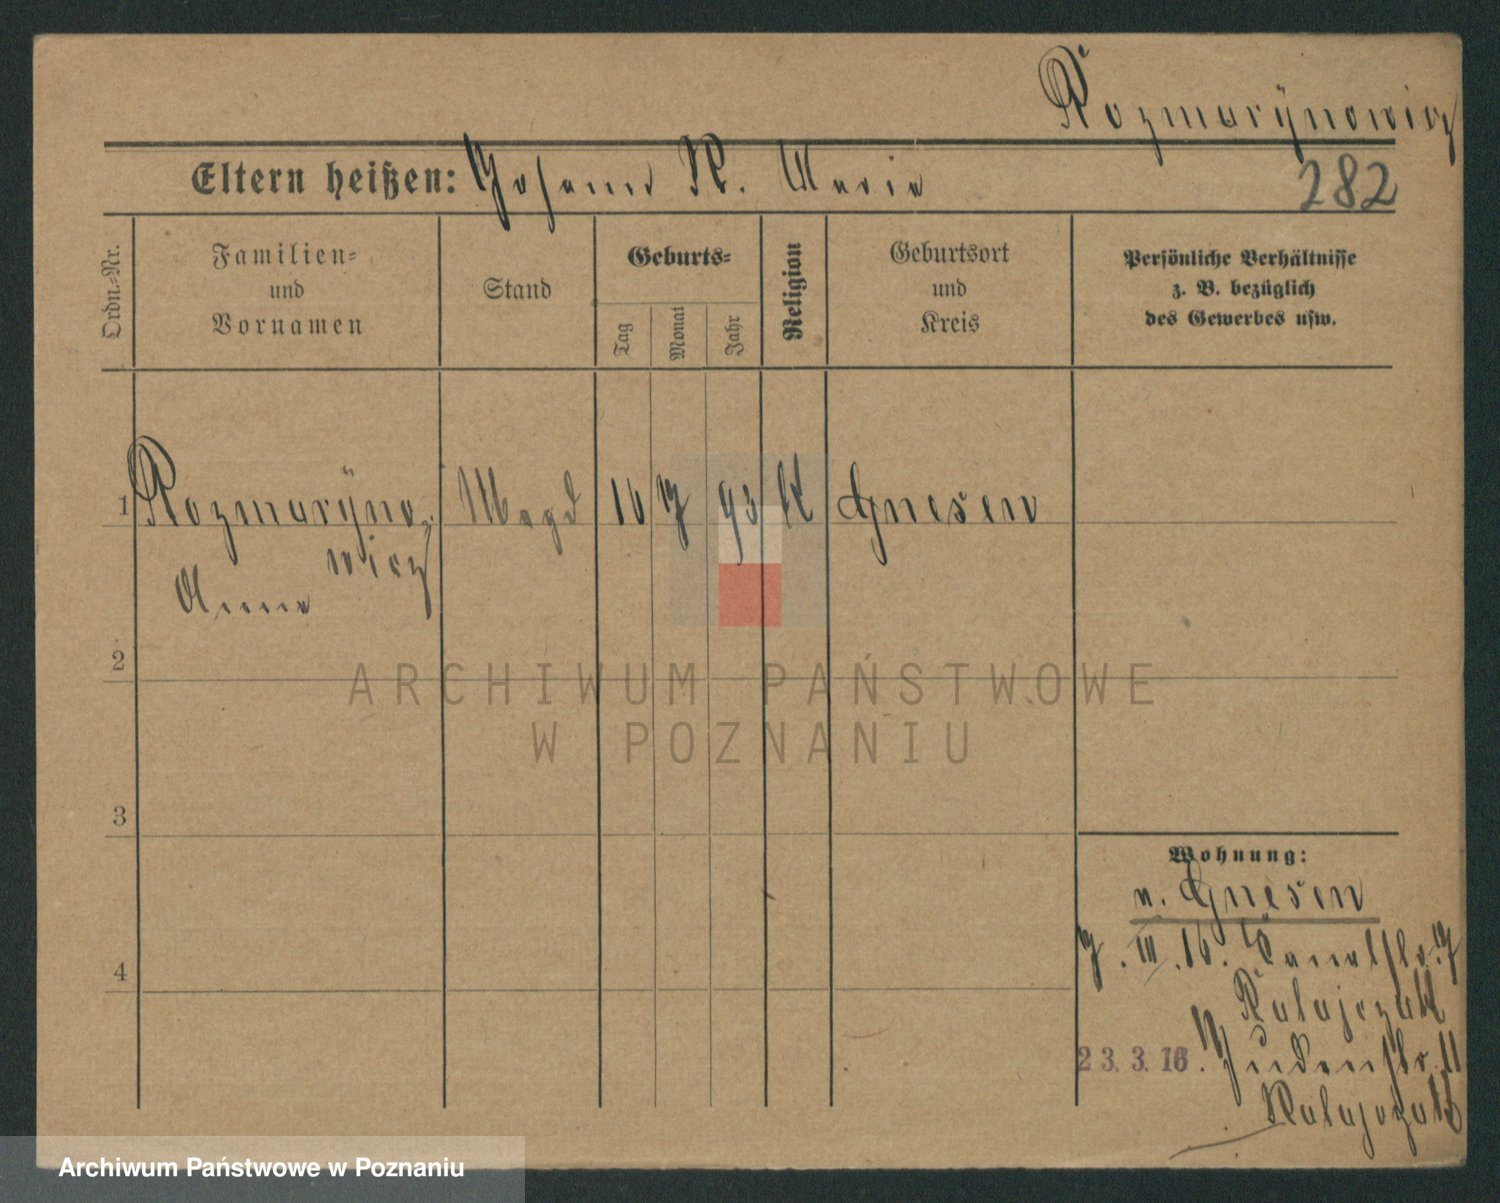 Rozmarÿnowicz
Eltern heißen: Johann R. Marie
282
Ordn.-Nr.
Familien-
und
Vornamen
Stand
Geburts-
Tag
Monat
Jahr
Religion
Geburtsort
und
Kreis
Persönliche Verhältnisse
z. B. bezüglich
des Gewerbes usw.
1 Rozmarÿno- Magd 16 7 93 K Gnesen
wicz
Anna
2
3
4
Wohnung:
v. Gnesen
7. III. 16. 7
Ratajczak
23. 3. 16. Judenstr. 11
Ratajczak
ARCHIWUM PAŃSTWOWE
W POZNANIU
Archiwum Państwowe w Poznaniu